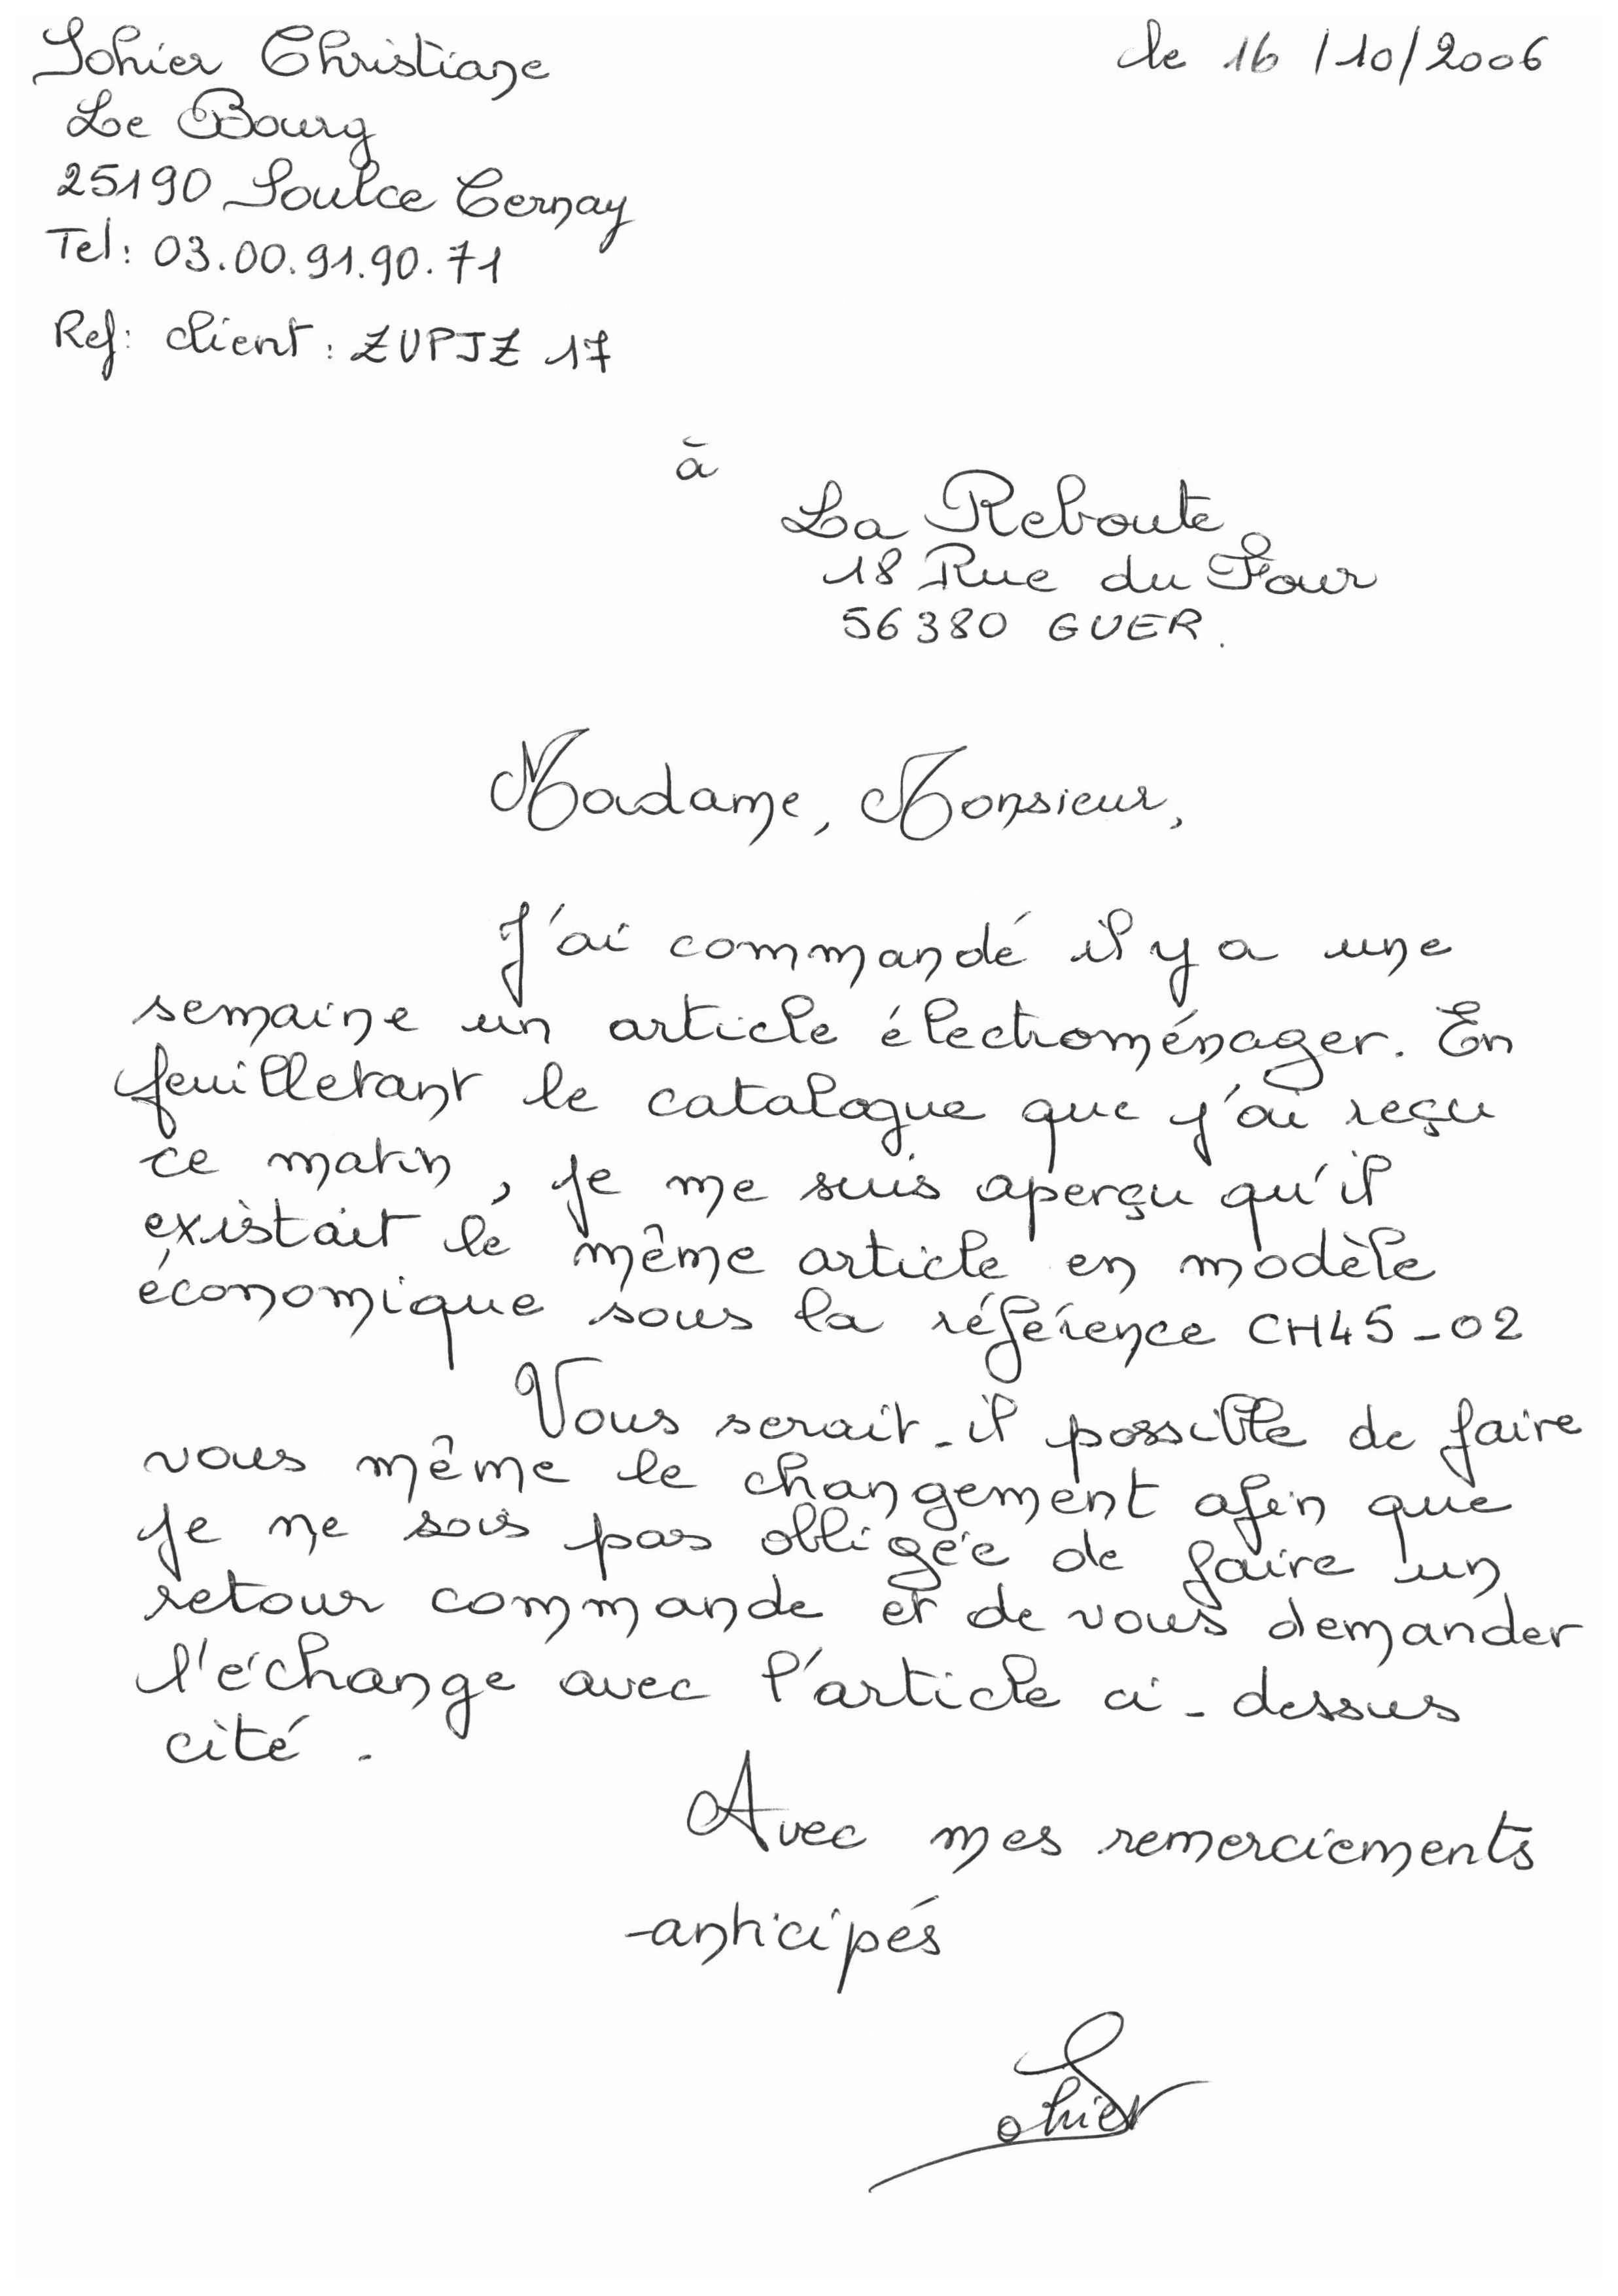 Sohier Christiane
le 16/10/2006
Le Bourg
25190 Soulce Cernay
Tel: 03.00.91.90.71
Ref: client: ZUPJZ 17
à
La Reboute
18 Rue du Four
56380 GUER.
Madame, Monsieur,
J'ai commandé il y a une
semaine un article électroménager. En
feuilletant le catalogue que j'ai reçu
ce matin, je me suis aperçu qu'il
existait le même article en modèle
économique sous la référence CH45-02
Vous serait-il possible de faire
vous même le changement afin que
je ne sois pas obligée de faire un
retour commande et de vous demander
l'échange avec l'article ci-dessus
cité.
Avec mes remerciements
anticipés
Sohier